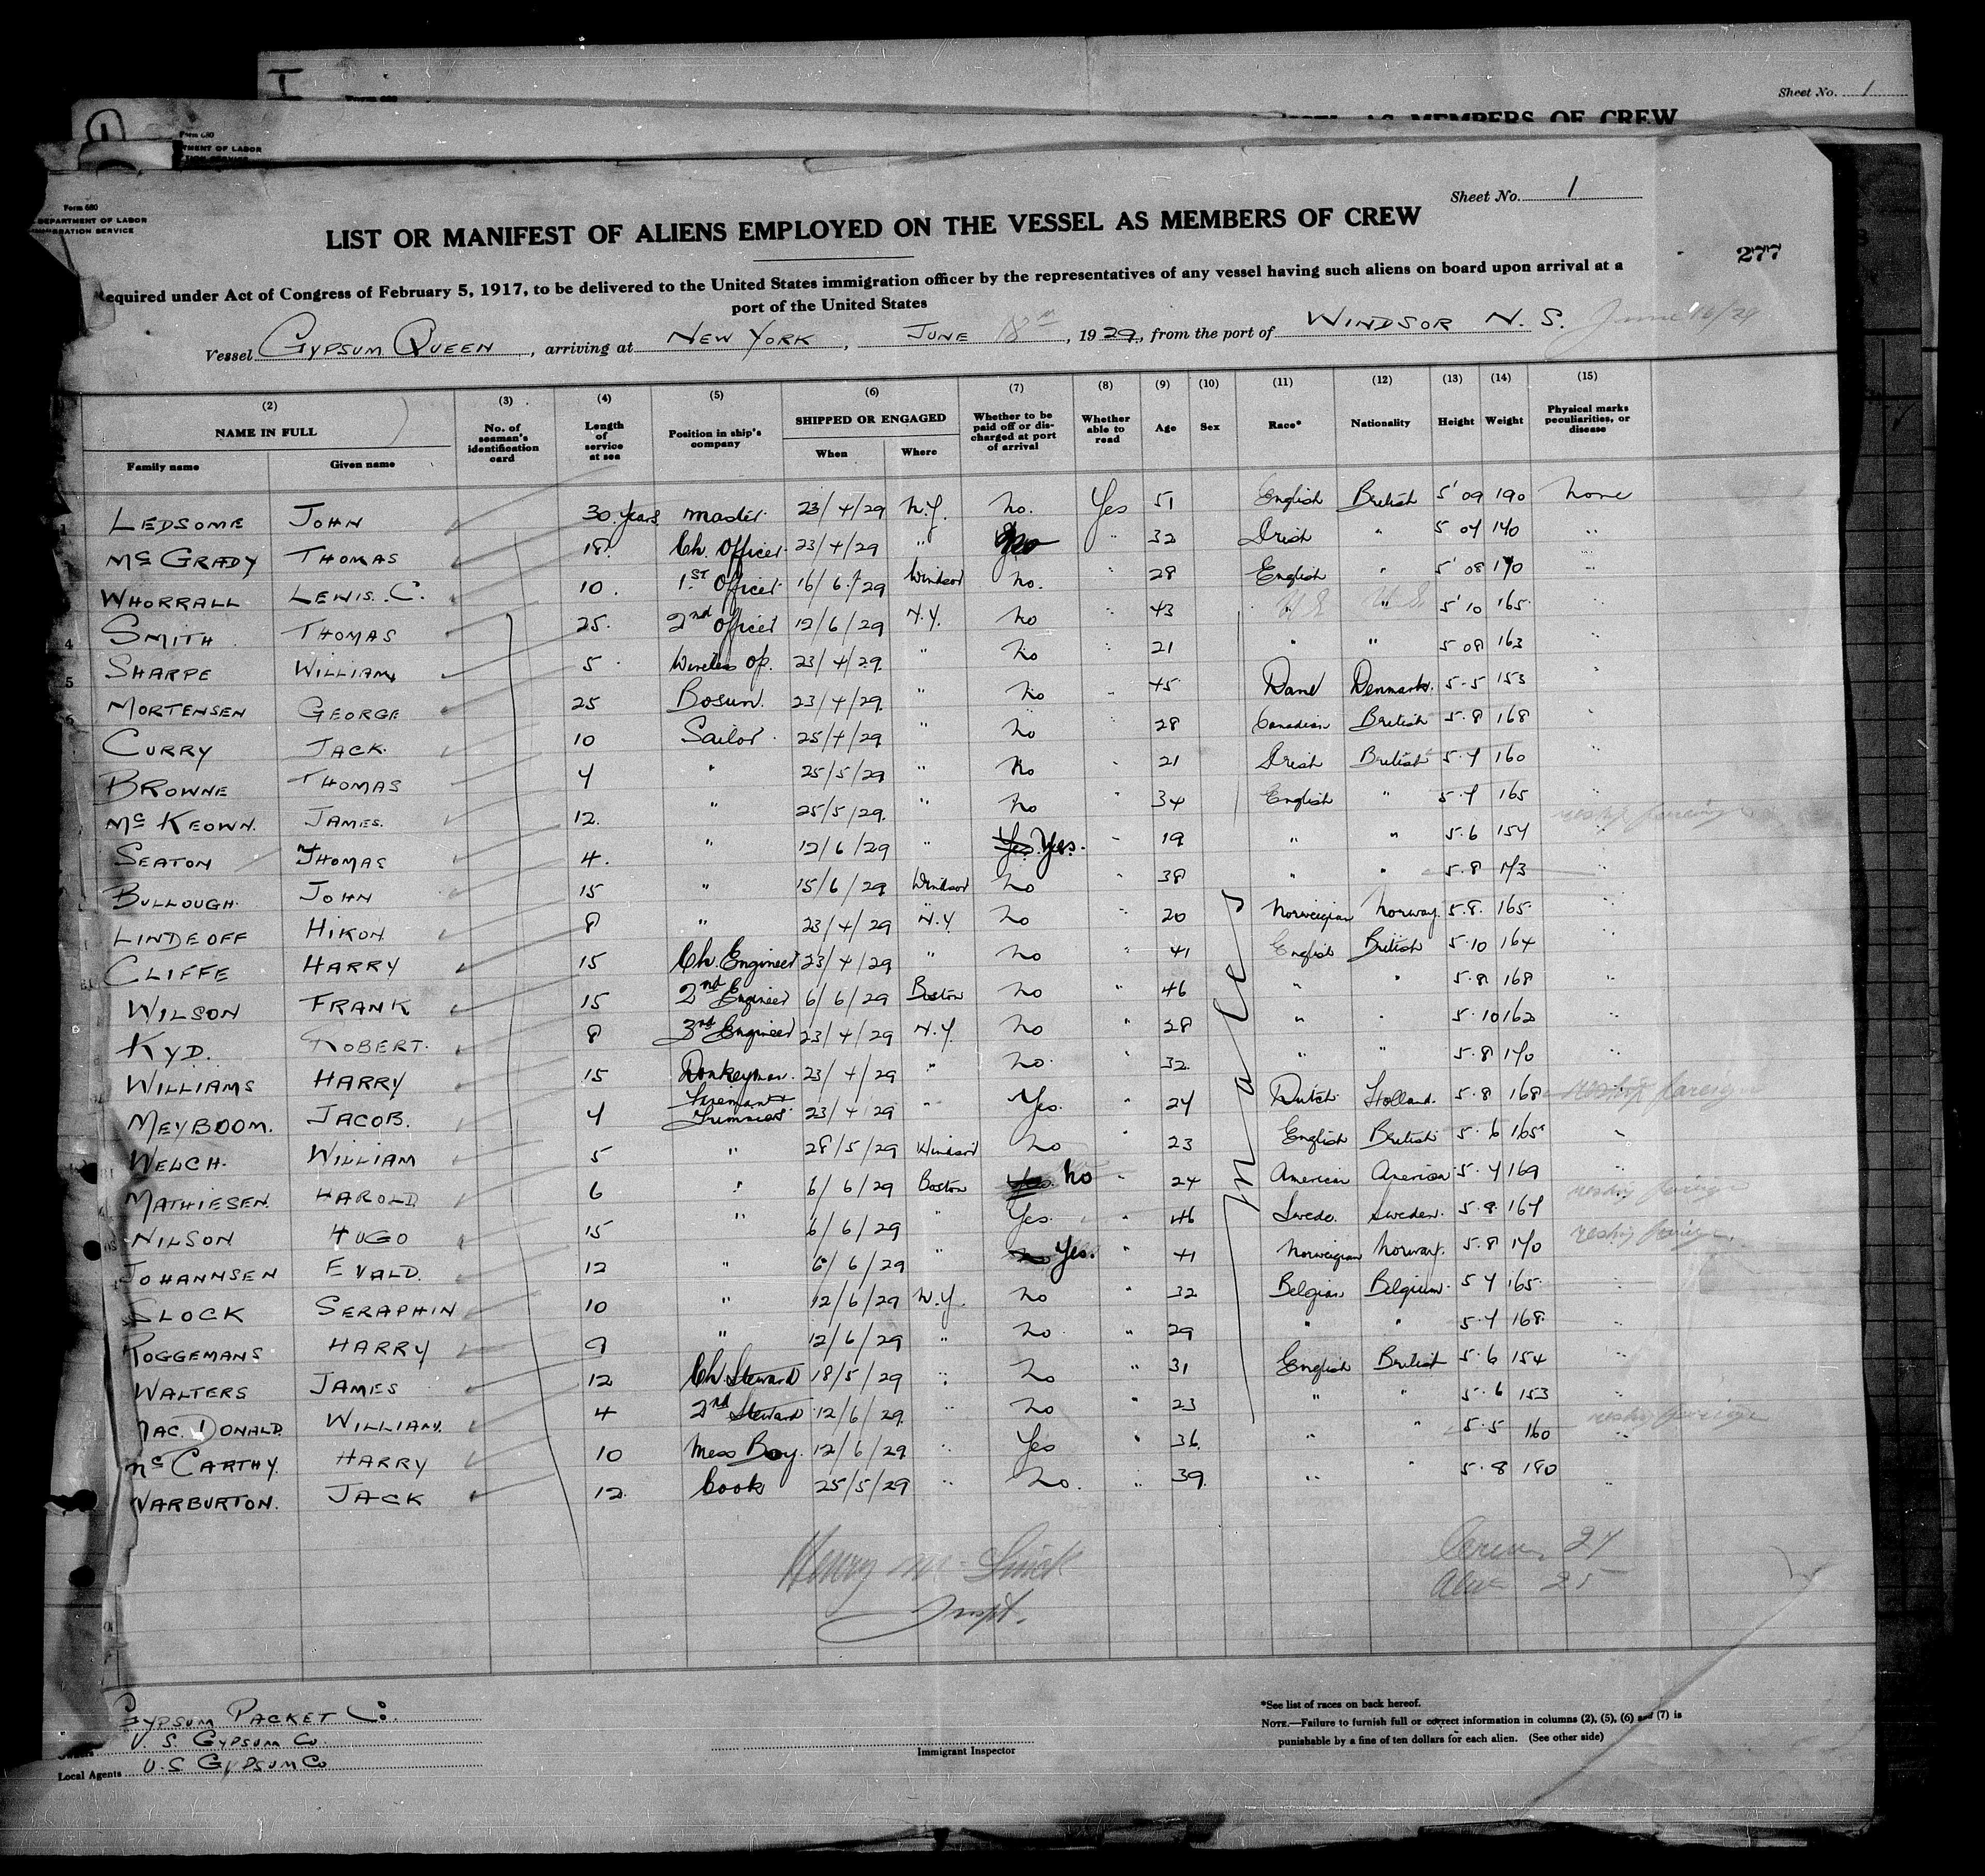 I
Sheet No. 1
AS MEMBERS OF CREW
1
Form 680
Form 680
DEPARTMENT OF LABOR
IMMIGRATION SERVICE
Sheet No. 1
LIST OR MANIFEST OF ALIENS EMPLOYED ON THE VESSEL AS MEMBERS OF CREW
277
Required under Act of Congress of February 5, 1917, to be delivered to the United States immigration officer by the representatives of any vessel having such aliens on board upon arrival at a
port of the United States
Vessel GYPSUM QUEEN, arriving at NEW YORK, JUNE 18th, 1929, from the port of WINDSOR N. S. June 16/29
(2) (3) (4) (5) (6) (7) (8) (9) (10) (11) (12) (13) (14) (15)
NAME IN FULL No. of seaman's identification card Length of service at sea Position in ship's company SHIPPED OR ENGAGED Whether to be paid off or discharged at port of arrival Whether able to read Age Sex Race* Nationality Height Weight Physical marks peculiarities, or disease
Family name Given name When Where
LEDSOME JOHN 30 years master 23/4/29 N.Y. no. Yes 51 English British 5'09 190 none
McGRADY THOMAS 18 Ch. Officer 23/4/29 " " 32 Irish " 5 04 140 "
WHORRALL LEWIS. C. 10 1ST Officer 16/6/29 Windsor no. " 28 English " 5'08 170 "
4 SMITH THOMAS 25 2nd Officer 12/6/29 N.Y. no " 43 " " 5'10 165 "
5 SHARPE WILLIAM 5 Wireless Op. 23/4/29 " no " 21 " " 5 08 163 "
6 MORTENSEN GEORGE 25 Bosun. 23/4/29 " no " 45 Dane Denmark. 5-5 153 "
CURRY JACK 10 Sailor 25/4/29 " no " 28 Canadian British 5.8 168 "
BROWNE THOMAS 4 " 25/5/29 " no " 21 Irish British 5.4 160 "
McKEOWN. JAMES. 12 " 25/5/29 " no " 34 English " 5.4 165 "
SEATON THOMAS 4. " 12/6/29 " Yes Yes. " 19 " " 5.6 154 " reship foreign
BULLOUGH JOHN 15 " 15/6/29 Windsor no " 38 " " 5.8 173
LINDEOFF HIKON 8 " 23/4/29 N.Y no " 20 Norweigian Norway. 5.8. 165 "
CLIFFE HARRY 15 Ch. Engineer 23/4/29 " no " 41 English British 5.10 164 "
WILSON FRANK 15 2nd Engineer 6/6/29 Boston no " 46 " " 5.8 168 "
KYD. ROBERT. 8 3rd Engineer 23/4/29 N.Y. no " 28 " " 5.10 162 "
WILLIAMS HARRY 15 Donkeyman. 23/4/29 " no. " 32 " " 5.8 170 "
MEYBOOM. JACOB. 4 Fireman & Trimmer 23/4/29 " Yes. " 24 Dutch Holland. 5.8 168 reship foreign
WELCH. WILLIAM 5 " 28/5/29 Windsor no " 23 English British 5.6 165 "
MATHIESEN. HAROLD 6 " 6/6/29 Boston Yes. no " 24 American American 5.4 169 "
NILSON HUGO 15 " 6/6/29 " Yes. " 46 Swede. Sweden. 5.8. 164 reship foreign
JOHANNSEN EVALD. 12 " 6/6/29 " no Yes. " 41 Norweigian Norway. 5.8 170 reship foreign.
SLOCK SERAPHIN 10 " 12/6/29 N.Y. no " 32 Belgian Belgium. 5 4 165
ROGGEMANS HARRY 9 " 12/6/29 " no " 29 " " 5.4 168 "
WALTERS JAMES 12 Ch. Steward 18/5/29 " no " 31 English British 5.6 154 "
MAC. DONALD. WILLIAM. 4 2nd Steward 12/6/29 " no " 23 " " 5.6 153 "
McCARTHY. HARRY 10 Mess Boy. 12/6/29 " Yes " 36 " " 5.5 160 " reship foreign
WARBURTON. JACK 12 Cook 25/5/29 " no. " 39. " " 5.8 180 "
males
Inspt.
27
25
GYPSUM PACKET Co.
U. S. GYPSUM Co
Local Agents U.S GYPSUM Co
Immigrant Inspector
*See list of races on back hereof.
NOTE.—Failure to furnish full or correct information in columns (2), (5), (6) and (7) is
punishable by a fine of ten dollars for each alien. (See other side)